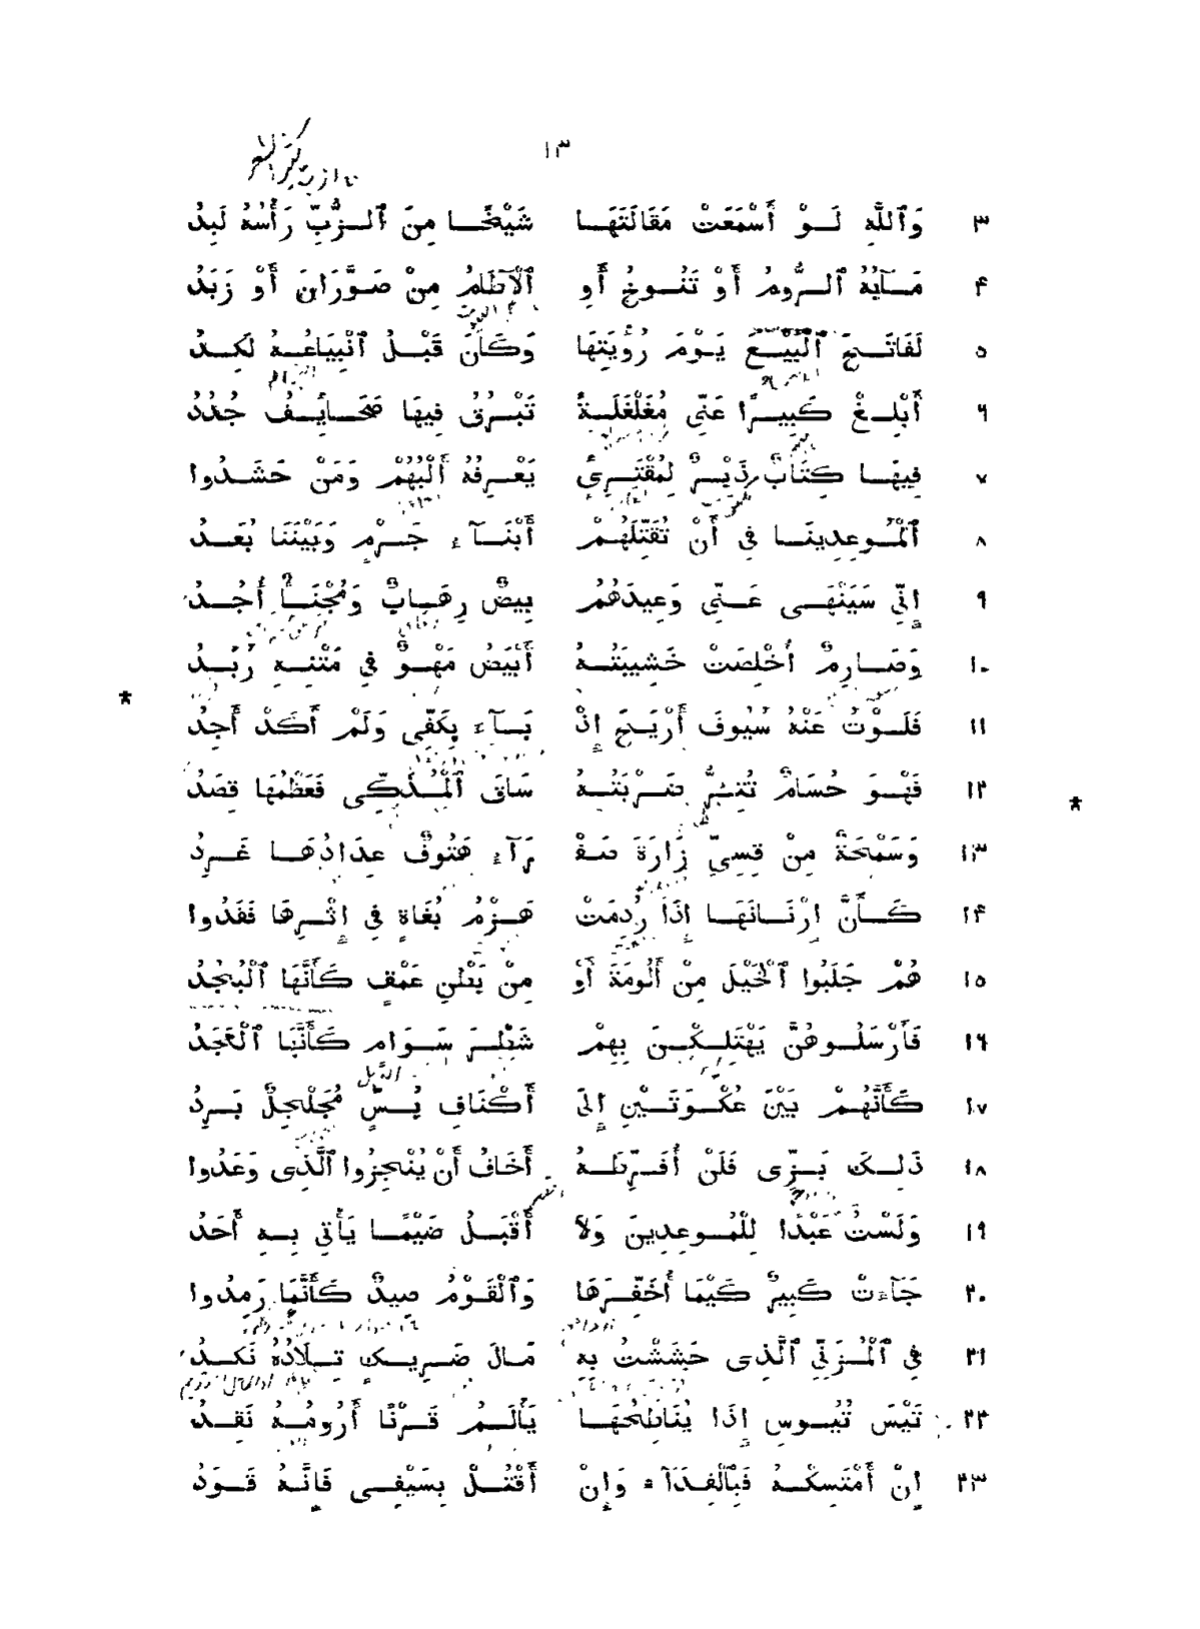 ١٣
٣ وَٱللّٰهِ لَــوْ أَسْمَعَتْ مَقَالَتَهَا شَيْخًا مِنَ ٱلزُّبِّ رَأْسُهُ لَبِدُ
۴ مَــآبُهُ ٱلرُّومُ أَوْ تَنُوخُ أَوِ ٱلْآطَامُ مِنْ صَوَّرَانَ أَوْ زَبَدُ
٥ لَفَاتَحَ ٱلْبَيْعَ يَوْمَ رُؤْيَتِهَا وَكَانَ قَبْلُ ٱنْبِيَاعُهُ لَكِدُ
٦ أَبْلِغْ كَبِيرًا عَنِّى مُغَلْغَلَةً تَبْرُقُ فِيهَا صَحَايِفُ جُدُدُ
٧ فِيهَا كِتَابٌ ذَيْرٌ لِمُقْتَرِئٍ يَعْرِفُهُ أَلْبُهُمْ وَمَنْ حَشَدُوا
٨ ٱلْمُوعِدِينَا فِى أَنْ تُقَتِّلَهُمْ أَبْنَآءَ جَرْمٍ وَبَيْنَنَا بُعَدُ
٩ إِنِّى سَيَنْهَى عَنِّى وَعِيدَهُمُ بِيضٌ رِهَابٌ وَمُجْنَأٌ أُجُدُ
١٠ وَصَارِمٌ أُخْلِصَتْ خَشِيبَتُهُ أَبْيَضُ مَهْوٌ فِى مَتْنِهِ رُبَدُ
١١ فَلَوْتُ عَنْهُ سُيُوفَ أَرْيَحَ إِذْ بَــآءَ بِكَفِّى وَلَمْ أَكَدْ أَجِدُ
١٢ فَهْوَ حُسَامٌ تُتِرُّ ضَرْبَتُهُ سَاقَ ٱلْمُذَكِّى فَعَظْمُهَا قِصَدُ
١٣ وَسَمْحَةٌ مِنْ قِسِىِّ زَارَةَ صَفْـ ـرَآءُ هَتُوفٌ عِدَادُهَا غَرِدُ
١۴ كَأَنَّ إِرْنَانَهَا إِذَا رُدِمَتْ هَزْمُ بُغَاةٍ فِى إِثْرِهَا فَقَدُوا
١٥ هُمْ جَلَبُوا ٱلْخَيْلَ مِنْ أَلُومَةَ أَوْ مِنْ بَطْنِ عَمْقٍ كَأَنَّهَا ٱلْبُجُدُ
١٦ فَأَرْسَلُوهُنَّ يَهْتَلِكْنَ بِهِمْ شَطْرَ سَوَامٍ كَأَنَّهَا ٱلْفَجَدُ
١٧ كَأَنَّهُمْ بَيْنَ عُكْوَتَيْنِ إِلَى أَكْنَافِ بُسٍّ مُجَلْجِلٌ بَرِدُ
١٨ ذَلِكَ بَزِّى فَلَنْ أُفَرِّطَهُ أَخَافُ أَنْ يُنْجِزُوا ٱلَّذِى وَعَدُوا
١٩ وَلَسْتُ عَبْدًا لِلْمُوعِدِينَ وَلَا أَقْبَلُ ضَيْمًا يَأْتِى بِهِ أَحَدُ
٢٠ جَآءَتْ كَبِيرٌ كَيْمَا أُخَفِّرَهَا وَٱلْقَوْمُ صِيدٌ كَأَنَّمَا رَمِدُوا
٢١ فِى ٱلْمُزَنِىِّ ٱلَّذِى حَشَشْتُ بِهِ مَالَ ضَرِيكٍ تِلَادُهُ نَكِدُ
٢٢ تَيْسَ تُيُوسٍ إِذَا يُنَاطِحُهَا يَأْلَمُ قَرْنًا أَرُومُهُ نَقِدُ
٢٣ إِنْ أَمْتَسِكْهُ فَبِٱلْفِدَآءِ وَإِنْ أَقْتُلْ بِسَيْفِى فَإِنَّهُ قَوَدُ